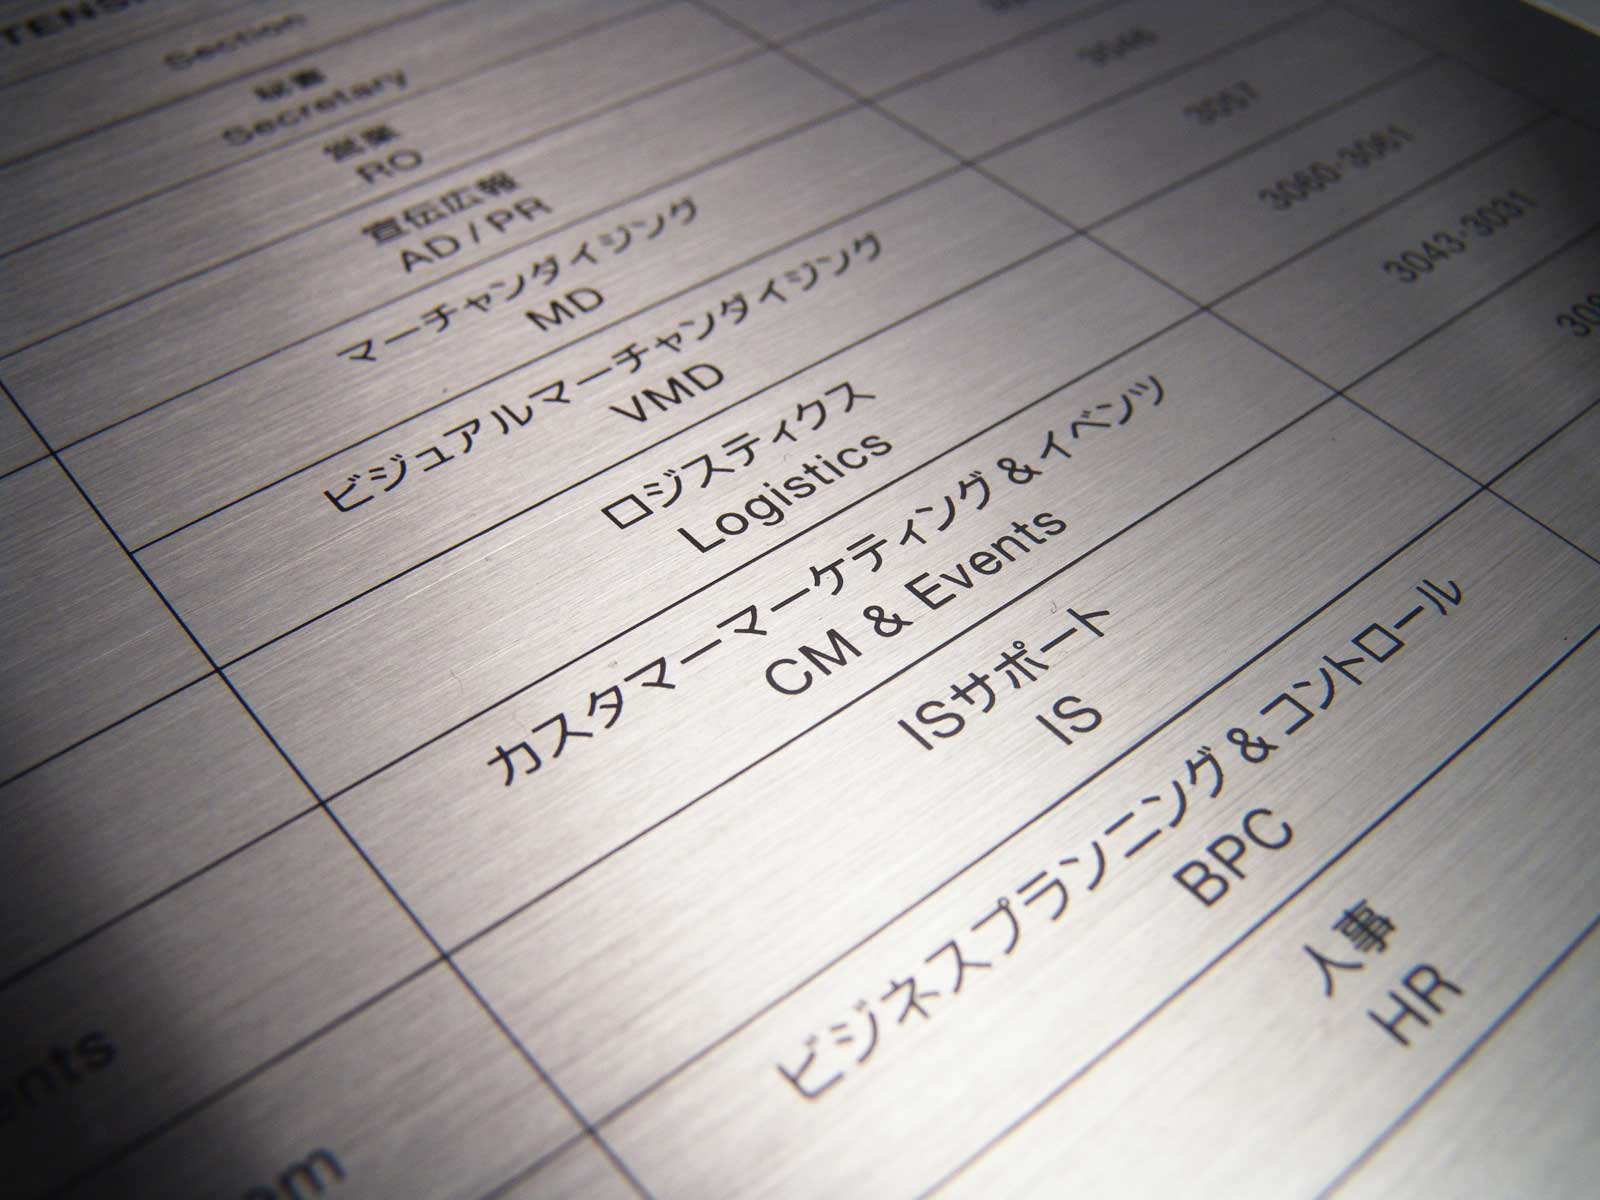 Section
秘書
Secretary
営業
RO
宣伝広報
AD / PR
3046
マーチャンダイジング
MD
3057
ビジュアルマーチャンダイジング
VMD
3060-3061
ロジスティクス
Logistics
3043-3031
カスタマーマーケティング&イベンツ
CM & Events
ISサポート
IS
ビジネスプランニング&コントロール
BPC
人事
HR